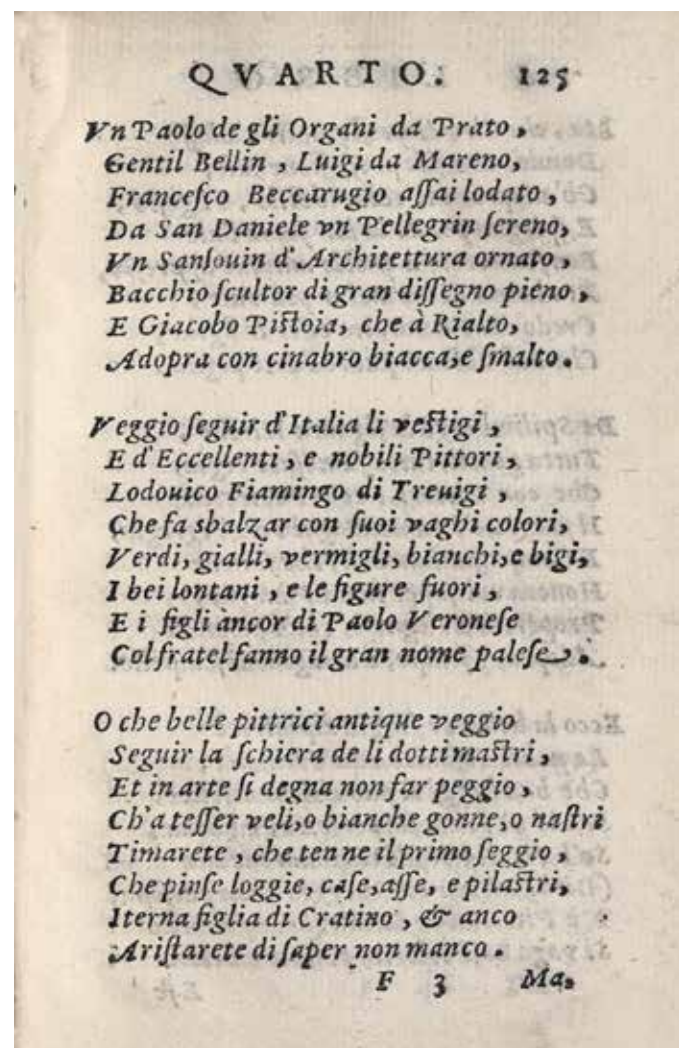 QVARTO. 125
Vn Paolo de gli Organi da Prato,
Gentil Bellin, Luigi da Mareno,
Franceſco Beccarugio aſſai lodato,
Da San Daniele vn Pellegrin ſereno,
Vn Sanſouin d'Architettura ornato,
Bacchio ſcultor di gran diſſegno pieno,
E Giacobo Piſtoia, che à Rialto,
Adopra con cinabro biacca, e ſmalto.
Veggio ſeguir d'Italia li veſtigi,
E d'Eccellenti, e nobili Pittori,
Lodouico Fiamingo di Treuigi,
Che fa sbalzar con ſuoi vaghi colori,
Verdi, gialli, vermigli, bianchi, e bigi,
I bei lontani, e le figure fuori,
E i figli àncor di Paolo Veroneſe
Col fratel fanno il gran nome paleſe.
O che belle pittrici antique veggio
Seguir la ſchiera de li dotti maſtri,
Et in arte ſi degna non far peggio,
Ch'a teſſer veli, o bianche gonne, o naſtri
Timarete, che tenne il primo ſeggio,
Che pinſe loggie, caſe, aſſe, e pilaſtri,
Iterna figlia di Cratino, & anco
Ariſtarete di ſaper non manco.
F 3 Ma,